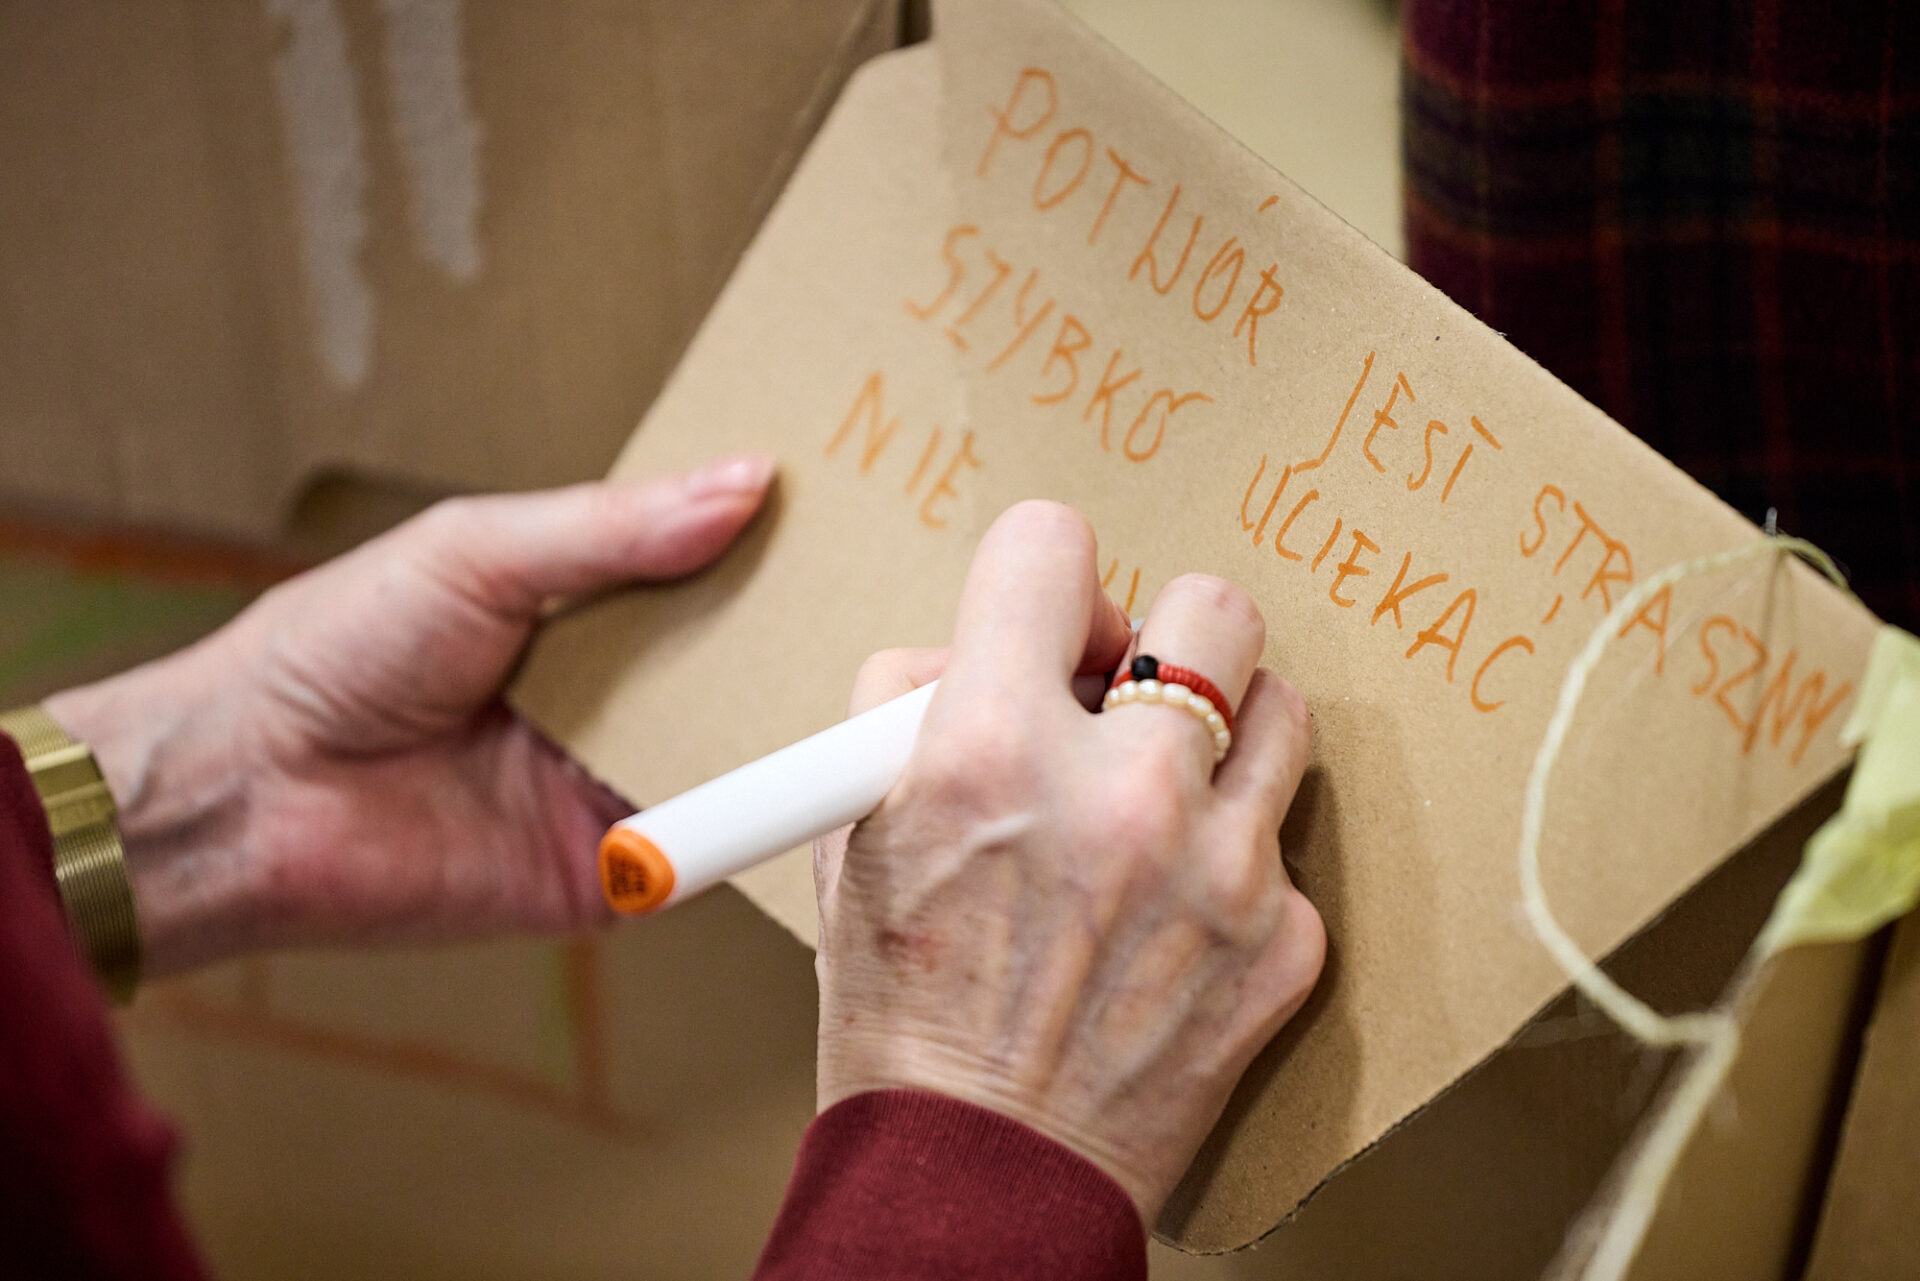 POTWÓR JEST STRASZNY
SZYBKO UCIEKAĆ
NIE